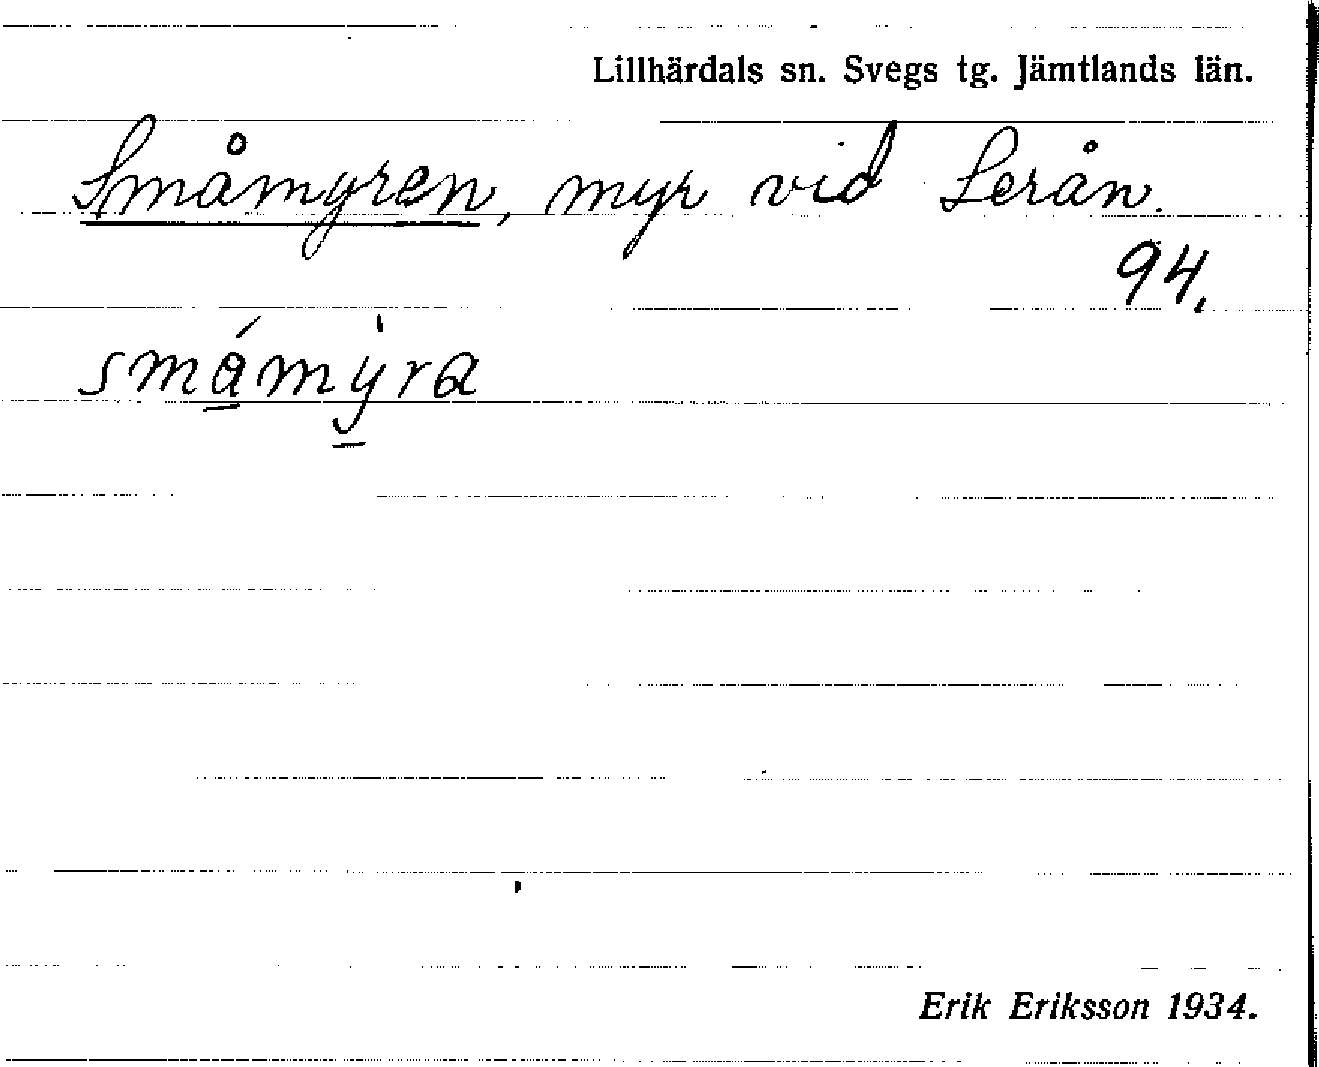 Lillhärdals sn. Svegs tg. Jämtlands län.
Småmyren, myr vid Lerån.
94.
smámýra
Erik Eriksson 1934.